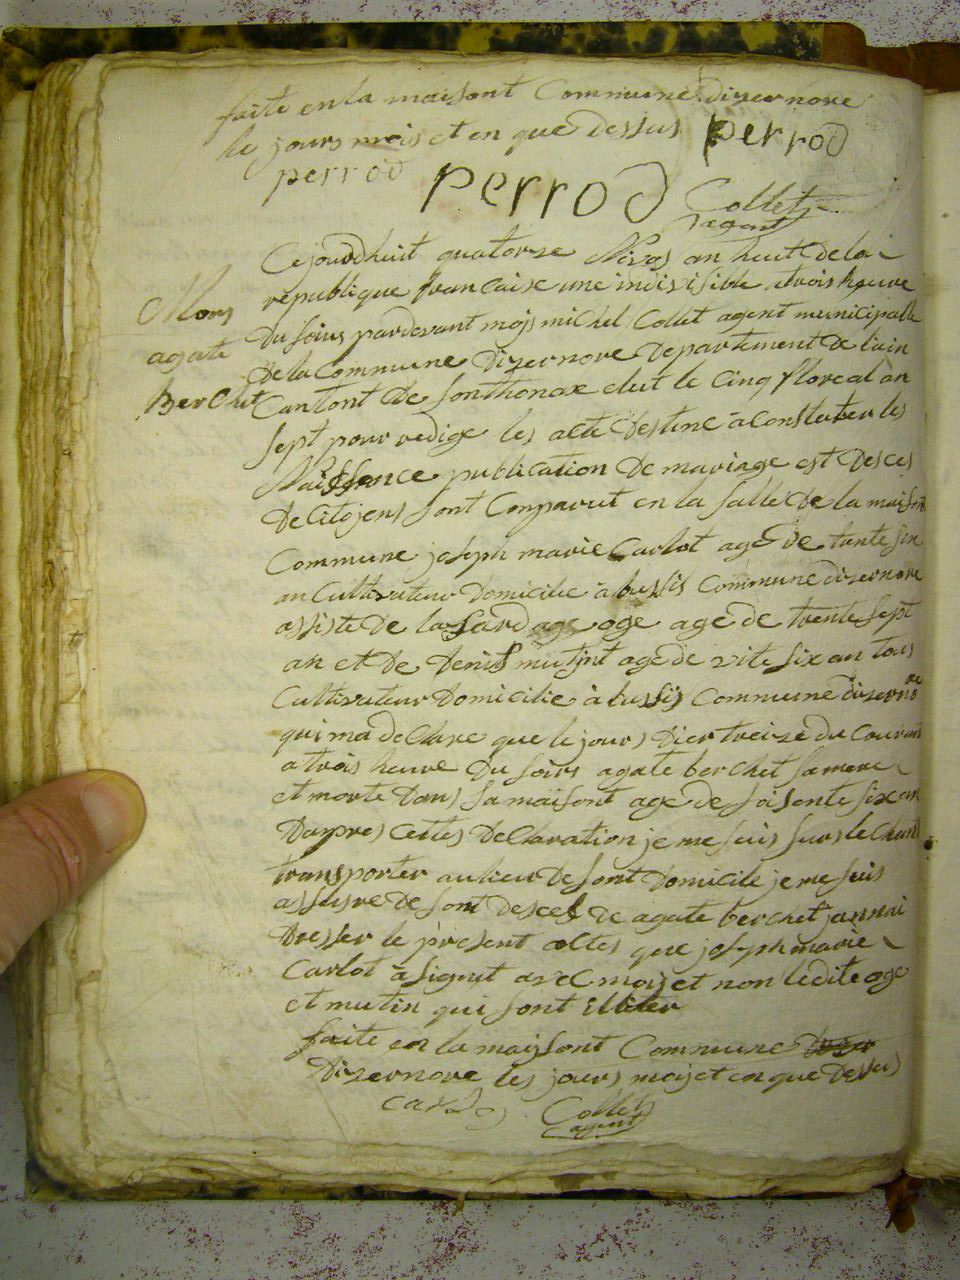 faite en la maisont Commune dizernore
le jours mois et en que dessus perrod
perrod perrod Collet
agent
Cejourdhuit quatorse Nivos an huit de la
republique francaise une indisisible a trois heure
Mors du soirs pardevant mojs michel Collet agent municipalle
agate de la Commune dizernore departement de l'ain
Berchet Cantont de sonthonax elut le Cinq floreal an
sept pour redige les acte destine a Constater les
Naissance publication de mariage est desces
de Citojens sont Comparut en la salle de la maisont
Commune joseph marie Carlot age de tante six
an Cultivateur domicilie a bussis Commune dizernore
assiste de la oge age de trente sept
an et de denis mutint age de vite six an tous
Cultivateur domicilie à bussijs Commune dizernore
qui ma declare que le jours dier treize du Courant
a trois heure du soirs agate berchet sa mere
et morte dans sa maisont age de soisente six an
dapres cettes declaration je me suis surs le Chant
transporter au lieur de sont domicile je me suis
assusre de sont desces de agate berchet jannai
dresser le present altes que joseph marie
Carlot a signet avec mojs et non ledite oge
et mutin qui sont illiter
faite en la maijsont Commune
dizernore les jours mojs et en que dessus
Collet
agent